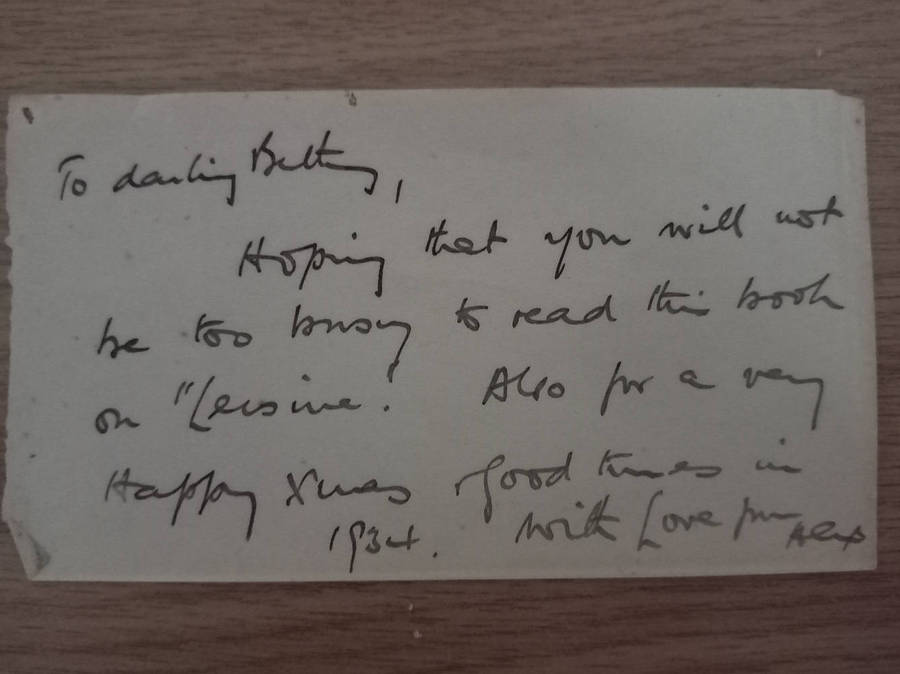 To darling Betty,
Hoping that you will not
be too busy to read this book
on "Leisure! Also for a very
Happy Xmas & good times in
1934. With Love from Alex